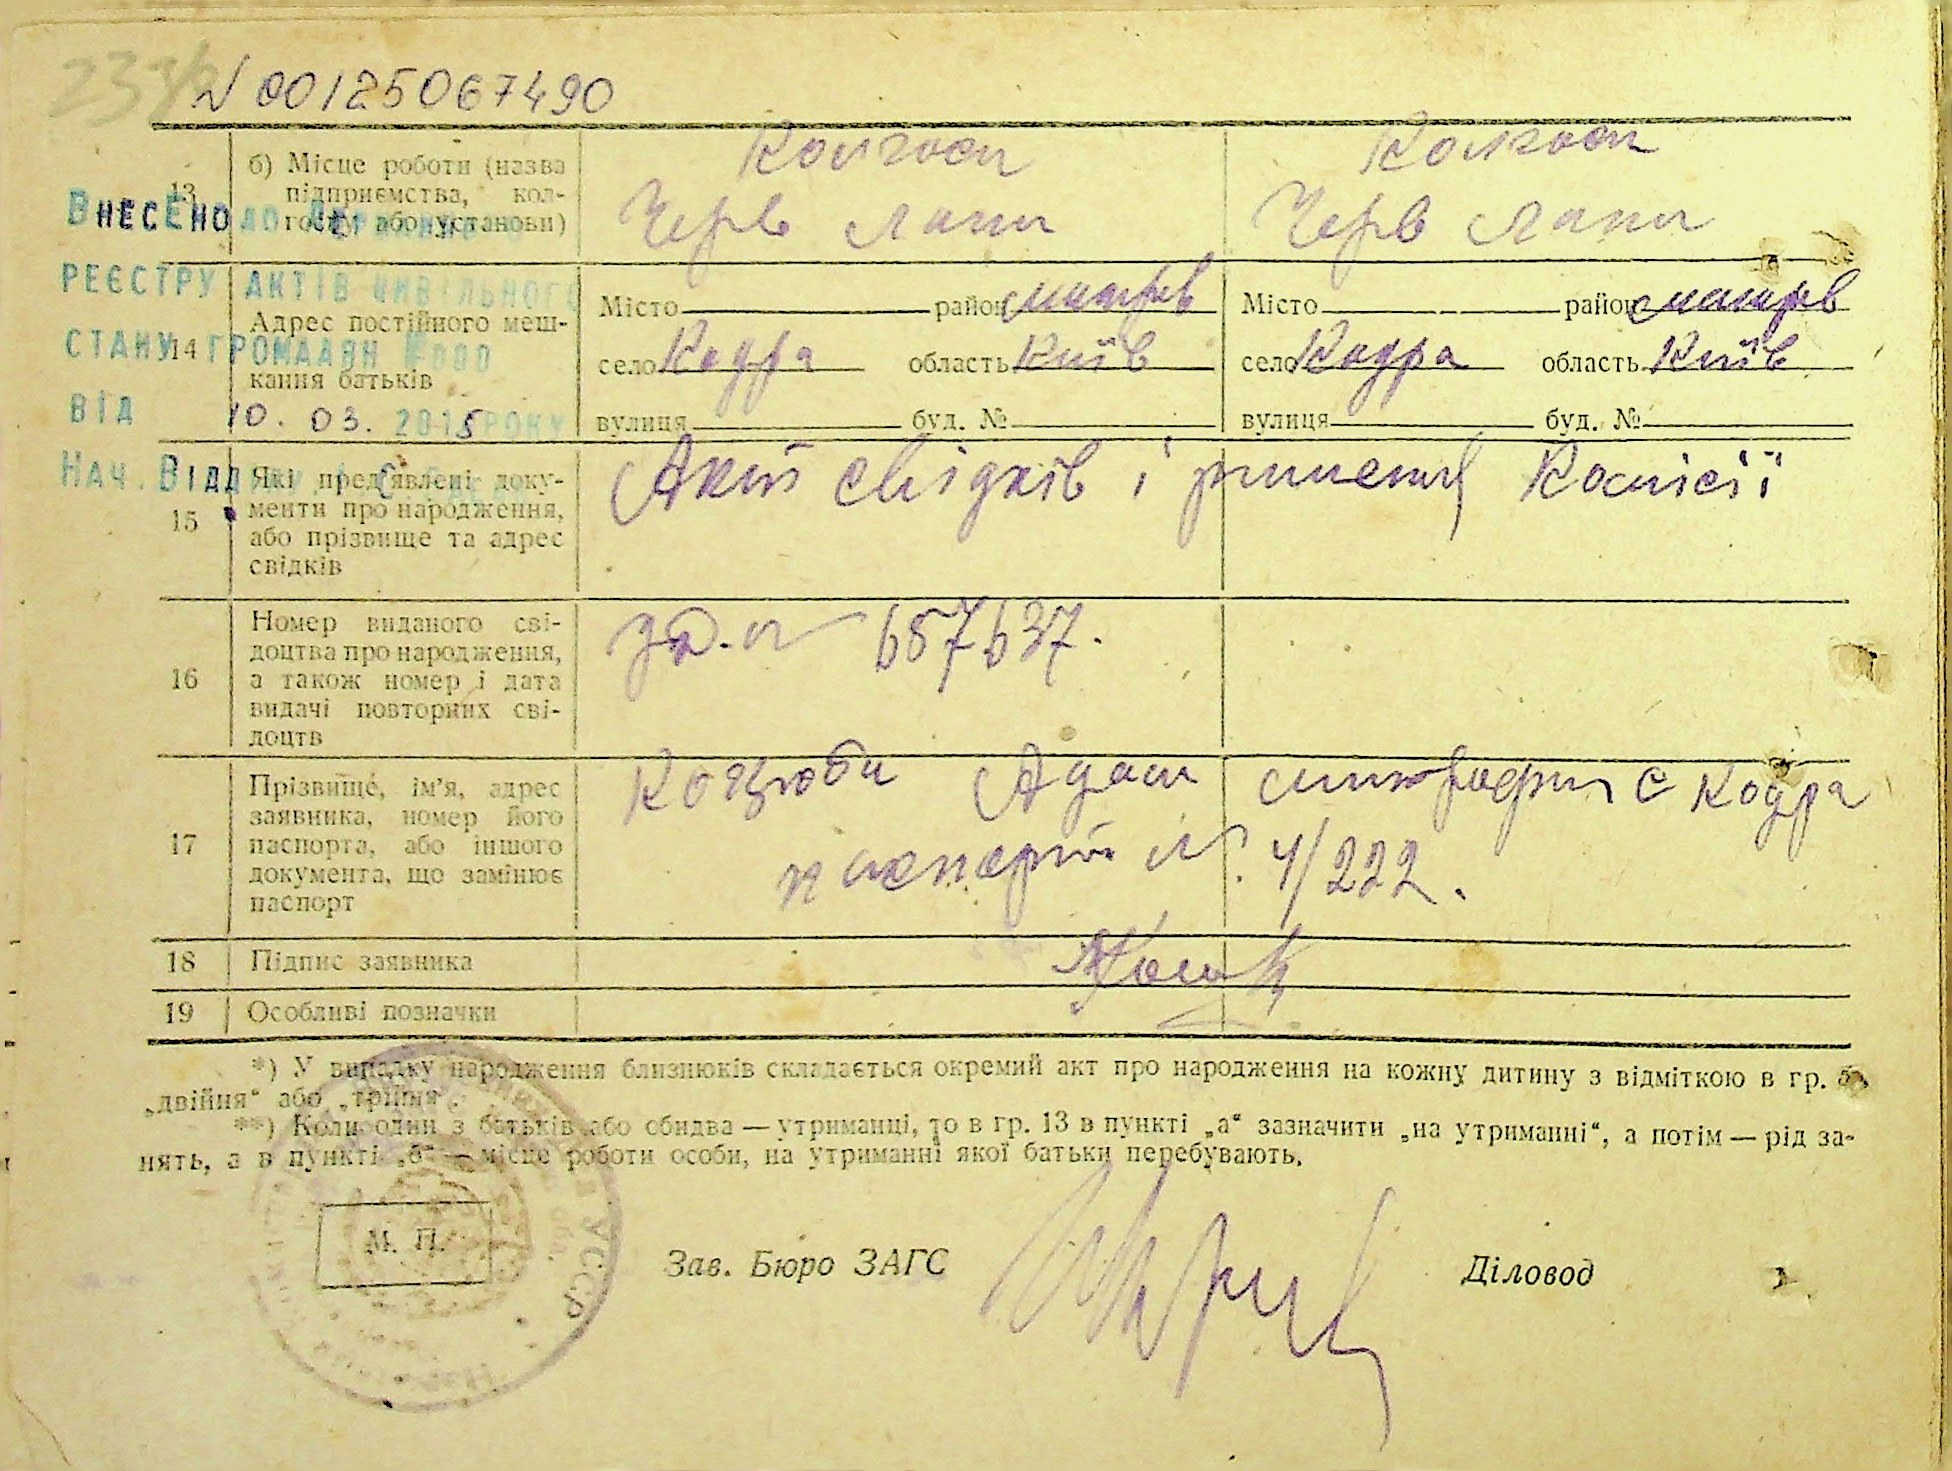 № 00125067490
13 б) Місце роботи (назва підприємства, кол-
госпу або установи)
Колгосп Колгосп
Черв лани Черв лани
Внесено до Державного
реєстру актів цивільного
стану громадян
від 10. 03. 2015 року
Нач. Відділу
14 Адрес постійного меш-
кання батьків
Місто район Місто район
село Кодра область Київ село Кодра область Київ
вулиця буд. № вулиця буд. №
15 Які пред'явлені доку-
менти про народження,
або прізвище та адрес
свідків
Акт свідків і рішення Комісії
16 Номер виданого сві-
доцтва про народження,
а також номер і дата
видачі повторних сві-
доцтв
657637.
17 Прізвище, ім'я, адрес
заявника, номер його
паспорта, або іншого
документа, що замінює
паспорт
Адам с Кодра
паспорт № 4/222.
18 Підпис заявника
19 Особливі позначки
*) У випадку народження близнюків складається окремий акт про народження на кожну дитину з відміткою в гр. 5
„двійня“ або „трійня“.
**) Коли один з батьків або обидва — утриманці, то в гр. 13 в пункті „а“ зазначити „на утриманні“, а потім — рід за-
нять, а в пункті „б“ — місце роботи особи, на утриманні якої батьки перебувають.
М. П.
Зав. Бюро ЗАГС Діловод
УССР